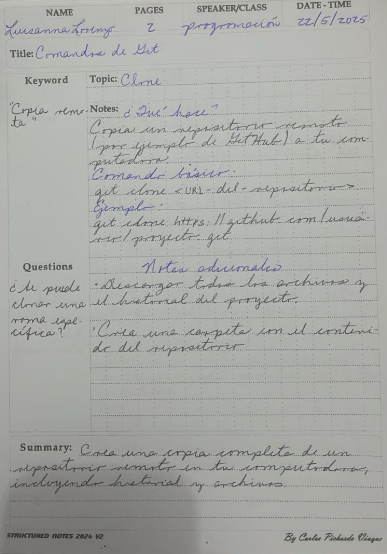 NAME PAGES SPEAKER/CLASS DATE - TIME
Luisanna Lorenzo 2 programación 22/5/2025
Title: Comandos de Git
Keyword Topic: Clone
"Copia remo-
ta"
Notes: ¿Qué hace?
Copia un repositorio remoto
(por ejemplo de GitHub) a tu com-
putadora.
Comando básico:
git clone <URL-del-repositorio>
Ejemplo:
git clone https://github.com/usua-
rio/proyecto.git
Questions
¿Se puede
clonar una
rama espe-
cífica?
Notas adicionales
• Descargar todos los archivos y
el historial del proyecto.
• Crea una carpeta con el conteni-
do del repositorio
Summary: Crea una copia completa de un
repositorio remoto en tu computadora,
incluyendo historial y archivos.
STRUCTURED NOTES 2024 V2 By Carlos Pichardo Vinque